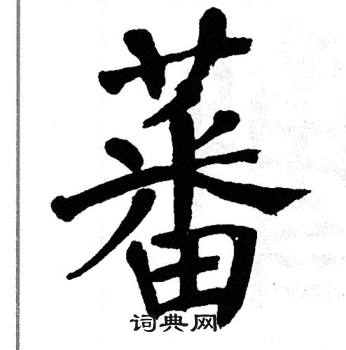 蕃
词典网